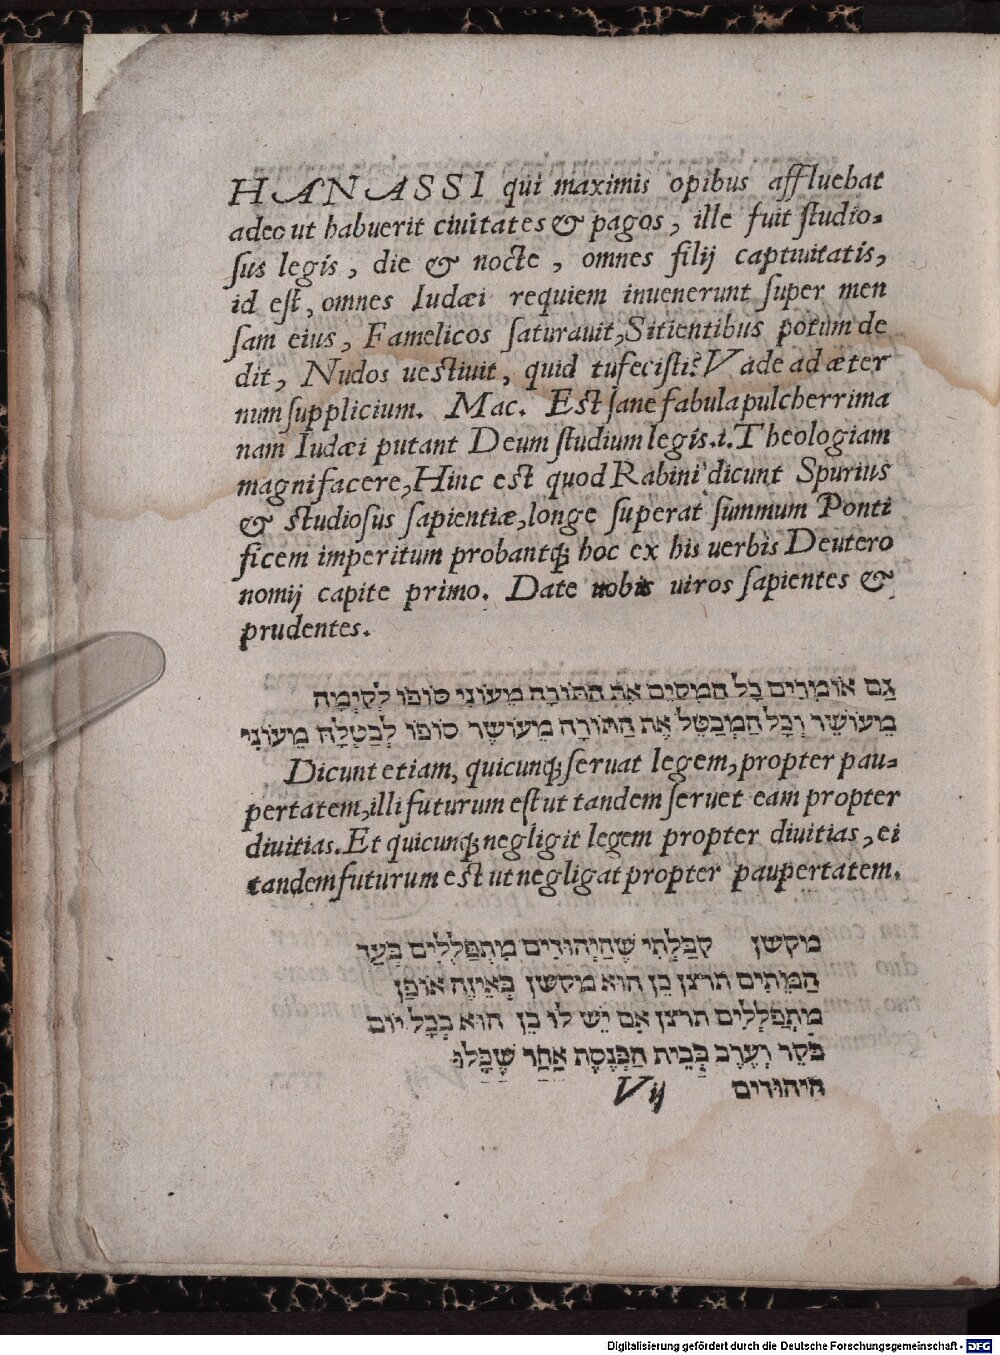 HANASSI qui maximis opibus affluebat
adeo ut habuerit ciuitates & pagos, ille fuit studio-
sus legis, die & nocte, omnes filij captiuitatis,
id est, omnes Iudæi requiem inuenerunt super men
sam eius, Famelicos saturauit, Sitientibus potum de
dit, Nudos uestiuit, quid tu fecisti? Vade ad æter
num supplicium. Mac. Est sane fabula pulcherrima
nam Iudæi putant Deum studium legis .i. Theologiam
magnifacere, Hinc est quod Rabini dicunt Spurius
& studiosus sapientiæ, longe superat summum Ponti
ficem imperitum probantq; hoc ex his uerbis Deutero
nomij capite primo. Date uobis uiros sapientes &
prudentes.
גַם אוֹמְרִים כָל הַמְקַיֵם אֶת הַתּוֹרָה מֵעוֹנִי סוֹפוֹ לְקַיְמָהּ
מֵעוֹשֶׁר וְכָל הַמְבַטֵל אֶת הַתּוֹרָה מֵעוֹשֶׁר סוֹפוֹ לְבַטְלָהּ מֵעוֹנִי
Dicunt etiam, quicunq; seruat legem, propter pau-
pertatem, illi futurum est ut tandem seruet eam propter
diuitias. Et quicunq; negligit legem propter diuitias, ei
tandem futurum est ut negligat propter paupertatem.
מקשן קִבַּלְתִי שֶׁהַיְהוּדִים מִתְפַּלְלִים בְּעַד
הַמֵתִים תרצן כֵן הוּא מקשן בְּאֵיזֶה אוֹפַן
מִתְפַלְלִים תרצן אִם יֵשׁ לוֹ בֵן הוּא בְכָל יוֹם
בֹּקֶר וְעֶרֶב בְּבֵית הַכְּנֶסֶת אַחַר שֶׁכָּלוּ
V ij הַיהוּדִים
Digitalisierung gefördert durch die Deutsche Forschungsgemeinschaft - DFG